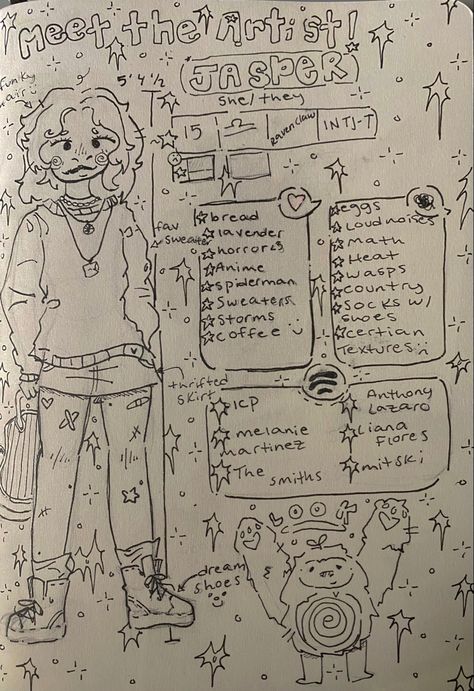 Meet the Artist!
JASPER
she/they
funky
hair
5'4½
15
♎
Ravenclaw
INTJ-T
fav
sweater
bread
lavender
horror
Anime
spiderman
Sweaters
Storms
coffee
eggs
Loud noises
Math
Heat
wasps
country
Socks w/
shoes
certian
Textures
thrifted
skirt
ICP
melanie
martinez
The smiths
Anthony
Lazaro
Liana
flores
mitski
dream
shoes